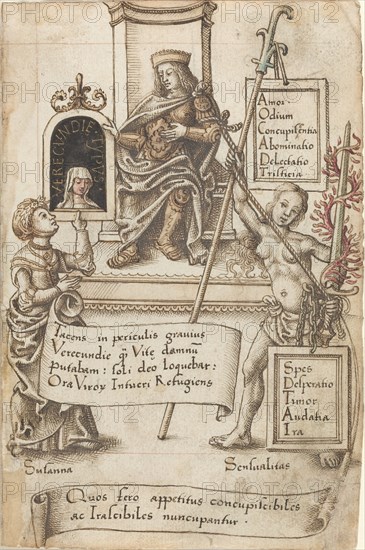 VERECUNDIE
Amor·
Odium
Concupiscentia
Abominatio
Delectatio
Tristicia
Iacens in periculis grauius
Verecundie q̃ Vitę damnũ
Putabam: soli deo loquebar:
Ora Viroꝝ Intueri Refugiens
Spes
Desperatio
Timor
Audatia
Ira
Susanna
Sensualitas
Quos fero appetitus concupiscibiles
ac Irascibiles nuncupantur·